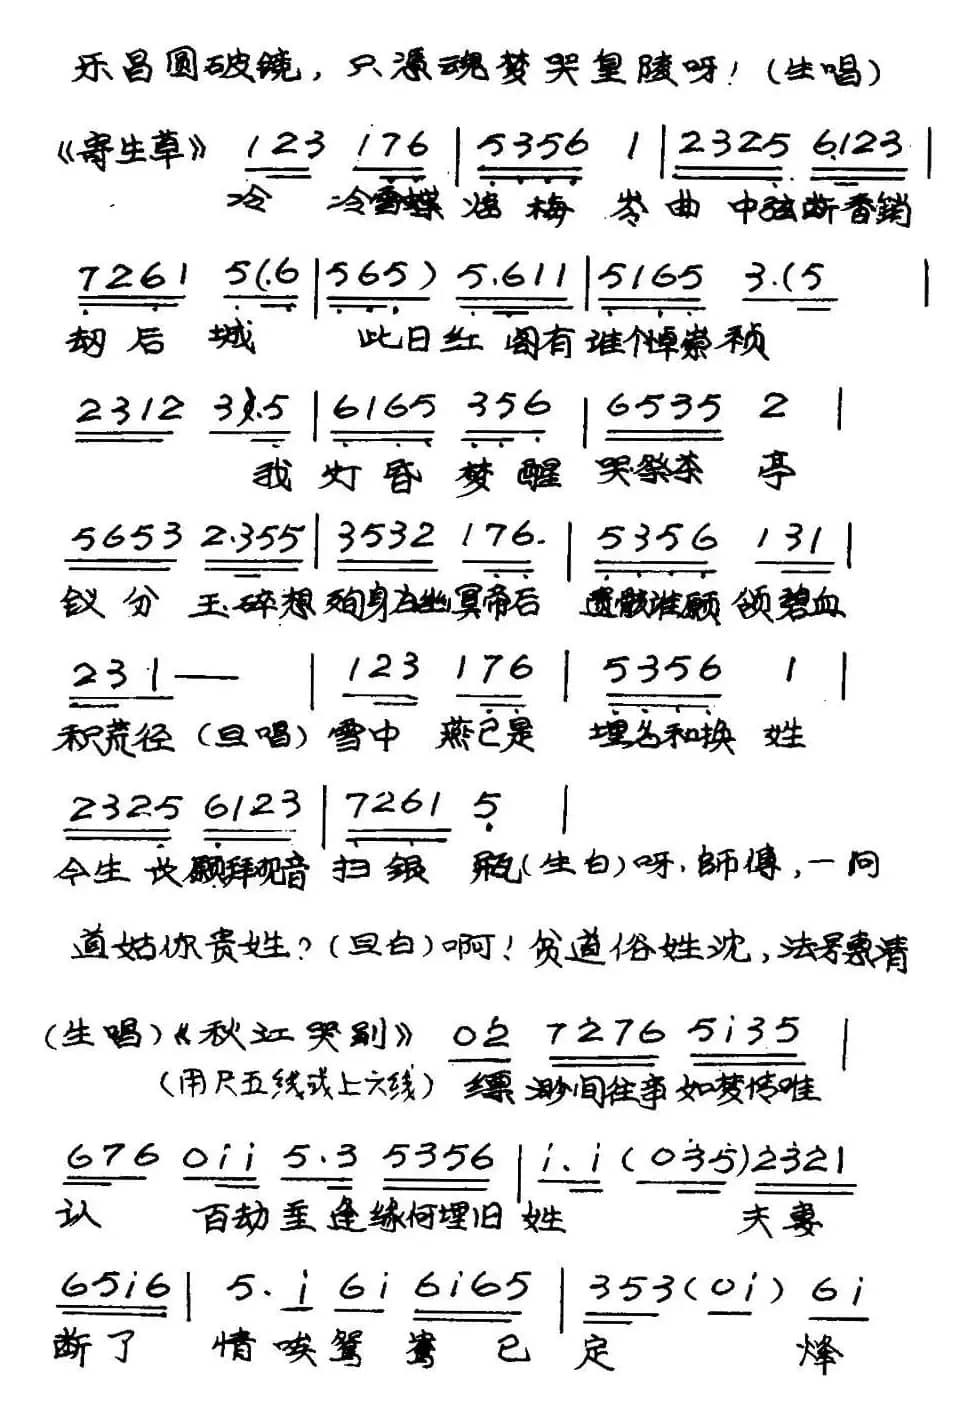 乐昌圆破镜，只凭魂梦哭皇陵呀！（生唱）
《寄生草》 123 176 | 5356 1 | 2325 6123 |
冷 冷雪蝶 临梅 岺曲 中弦断香銷
7261 5(.6 | 565) 5.611 | 5165 3.(5 |
劫后 城 此日红 阁有谁个悼崇祯
2312 3).5 | 6165 356 | 6535 2 |
我 灯昏 梦醒 哭祭茶 亭
5653 2.355 | 3532 176. | 5356 131 |
钗分 玉碎想殉身在幽冥帝后 遗骸谁愿 颌碧血
231— | 123 176 | 5356 1 |
积荒径（旦唱）雪中 燕已是 埋名和换 姓
2325 6123 | 7261 5 |
今生长愿拜观音 扫银 瓶（生白）呀．師傅，一问
道姑你贵姓？（旦白）啊！贫道俗姓沈，法号慧清
（生唱）《秋江哭别》 02 7276 5i35 |
（用尺五线或上六线） 缥渺间往事如梦情难
676 0ii 5.3 5356 | i.i (035) 2321
认 百劫重逢缘何埋旧 姓 夫妻
65i6 | 5.i 6i 6i65 | 353(0i) 6i
断了 情唉鸳鸯 已 定 烽